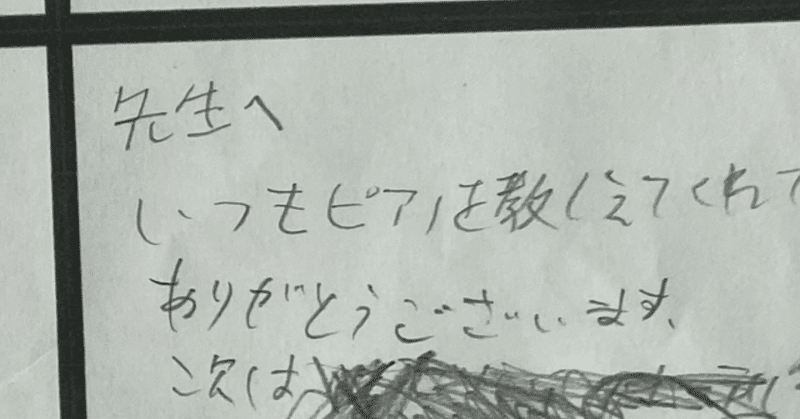 先生へ
いつもピアノを教しえてくれて
ありがとうございます、
次は